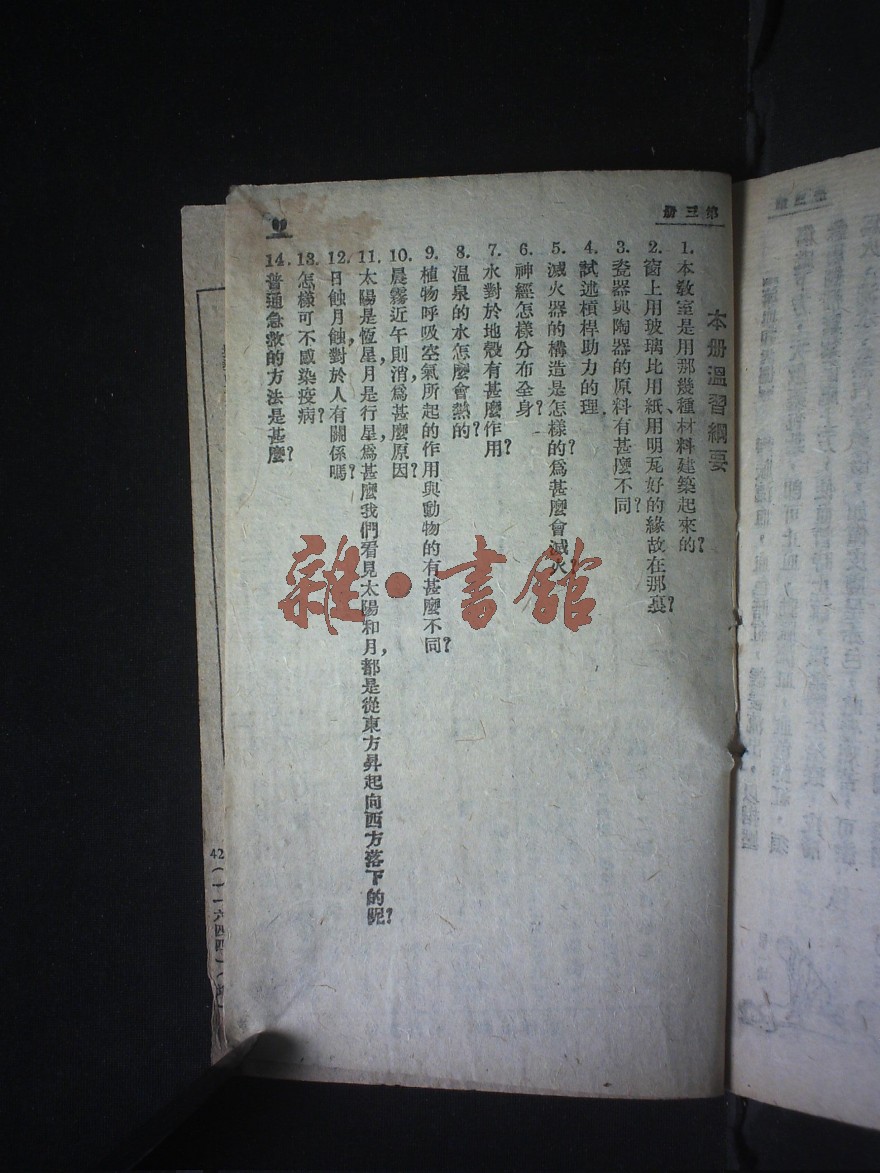 第三册
本册溫習綱要
1. 本教室是用那幾種材料建築起來的?
2. 窗上用玻璃比用紙、用明瓦好的緣故在那裏?
3. 瓷器與陶器的原料有甚麼不同?
4. 試述槓桿助力的理.
5. 滅火器的構造是怎樣的?爲甚麼會滅火?
6. 神經怎樣分布全身?
7. 水對於地殼有甚麼作用?
8. 溫泉的水怎麼會熱的?
9. 植物呼吸空氣所起的作用與動物的有甚麼不同?
10. 晨霧近午則消,爲甚麼原因?
11. 太陽是恆星,月是行星,爲甚麼我們看見太陽和月,都是從東方昇起向西方落下的呢?
12. 日蝕月蝕,對於人有關係嗎?
13. 怎樣可不感染疫病?
14. 普通急救的方法是甚麼?
雜·書館
42